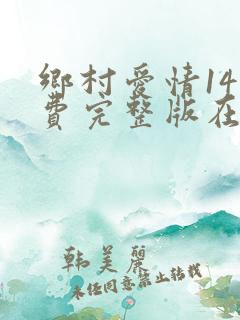 鄉村愛情14
費完整版在
韩美麗
未经同意禁止转载